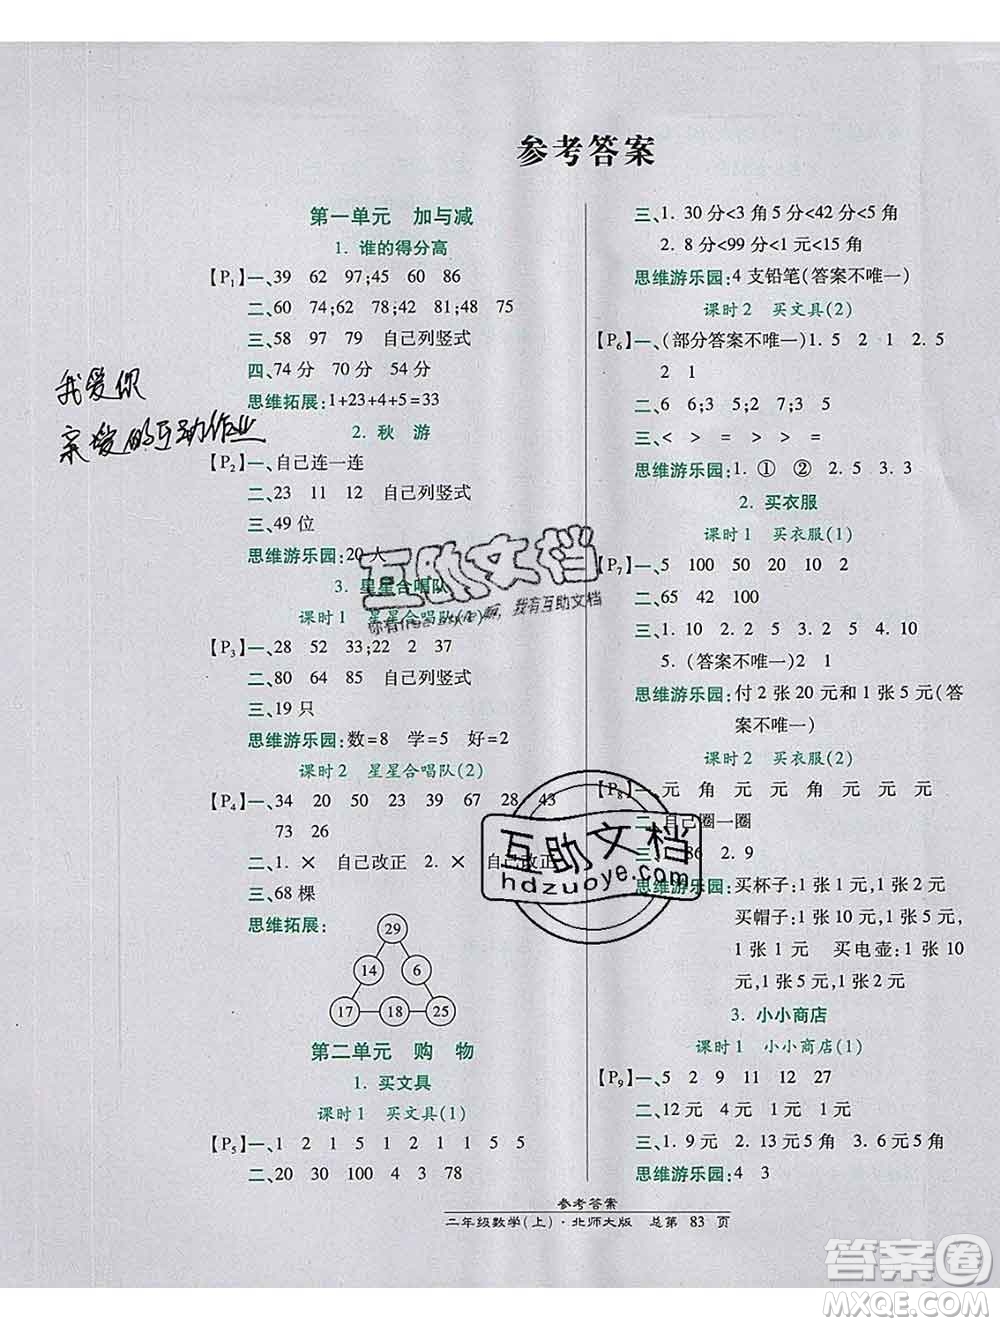 参考答案
第一单元　加与减
1. 谁的得分高
【P1】一、39　62　97;45　60　86
二、60　74;62　81;48　75
三、58　97　79　自己列竖式
四、74分　70分　54分
思维拓展:1+23+4+5=33
2. 秋　游
【P2】一、自己连一连
二、23　11　12　自己列竖式
三、49位
思维游乐园:20人
3. 星星合唱队
课时1　星星合唱队(1)
【P3】一、28　52　33;22　2　37
二、80　64　85　自己列竖式
三、19只
思维游乐园:数=8　学=5　好=2
课时2　星星合唱队(2)
【P4】一、34　20　50　23　67　28　43
73　26
二、1. ×　自己改正　2. ×　自己改正
三、68棵
思维拓展:
29
14　6
17　18　25
第二单元　购　物
1. 买文具
课时1　买文具(1)
【P5】一、1　2　1　5　1　2　1　1　5　5
二、20　30　100　4　3　78
三、1. 30分<3角5分<42分<5角
2. 8分<99分<1元<15角
思维游乐园:4支铅笔(答案不唯一)
课时2　买文具(2)
【P6】一、(部分答案不唯一)1. 5　2　1　2. 5
2　1
二、6　6;3　5;2　2
三、<　>　=　>　>　=
思维游乐园:1. ①　②　2. 5　3. 5
2. 买衣服
课时1　买衣服(1)
【P7】一、5　100　50　20　10　2
二、65　42　100
三、1. 10　2. 2　5　3. 2　5　4. 10
5. (答案不唯一)2　1
思维游乐园:付2张20元和1张5元(答
案不唯一)
课时2　买衣服(2)
【P8】一、元　角　元　角　元　元　元
二、自己圈一圈
三、1. 86　2. 9
思维游乐园:买杯子:1张1元,1张5元
买帽子:1张10元,1张5元,
1张1元　买电壶:1张10
元,1张5元,1张2元
3. 小小商店
课时1　小小商店(1)
【P9】一、5　2　9　11　12　27
二、12元　4元　2元
三、1. 9元　2. 13元5角　3. 6元5角
思维游乐园:4　3
我爱你
亲爱的互动作业
互助文档
我有互助文档
互助文档
hdzuoye.com
参考答案
二年级数学(上)·北师大版　总第　83　页
答案圈
MXQE.COM